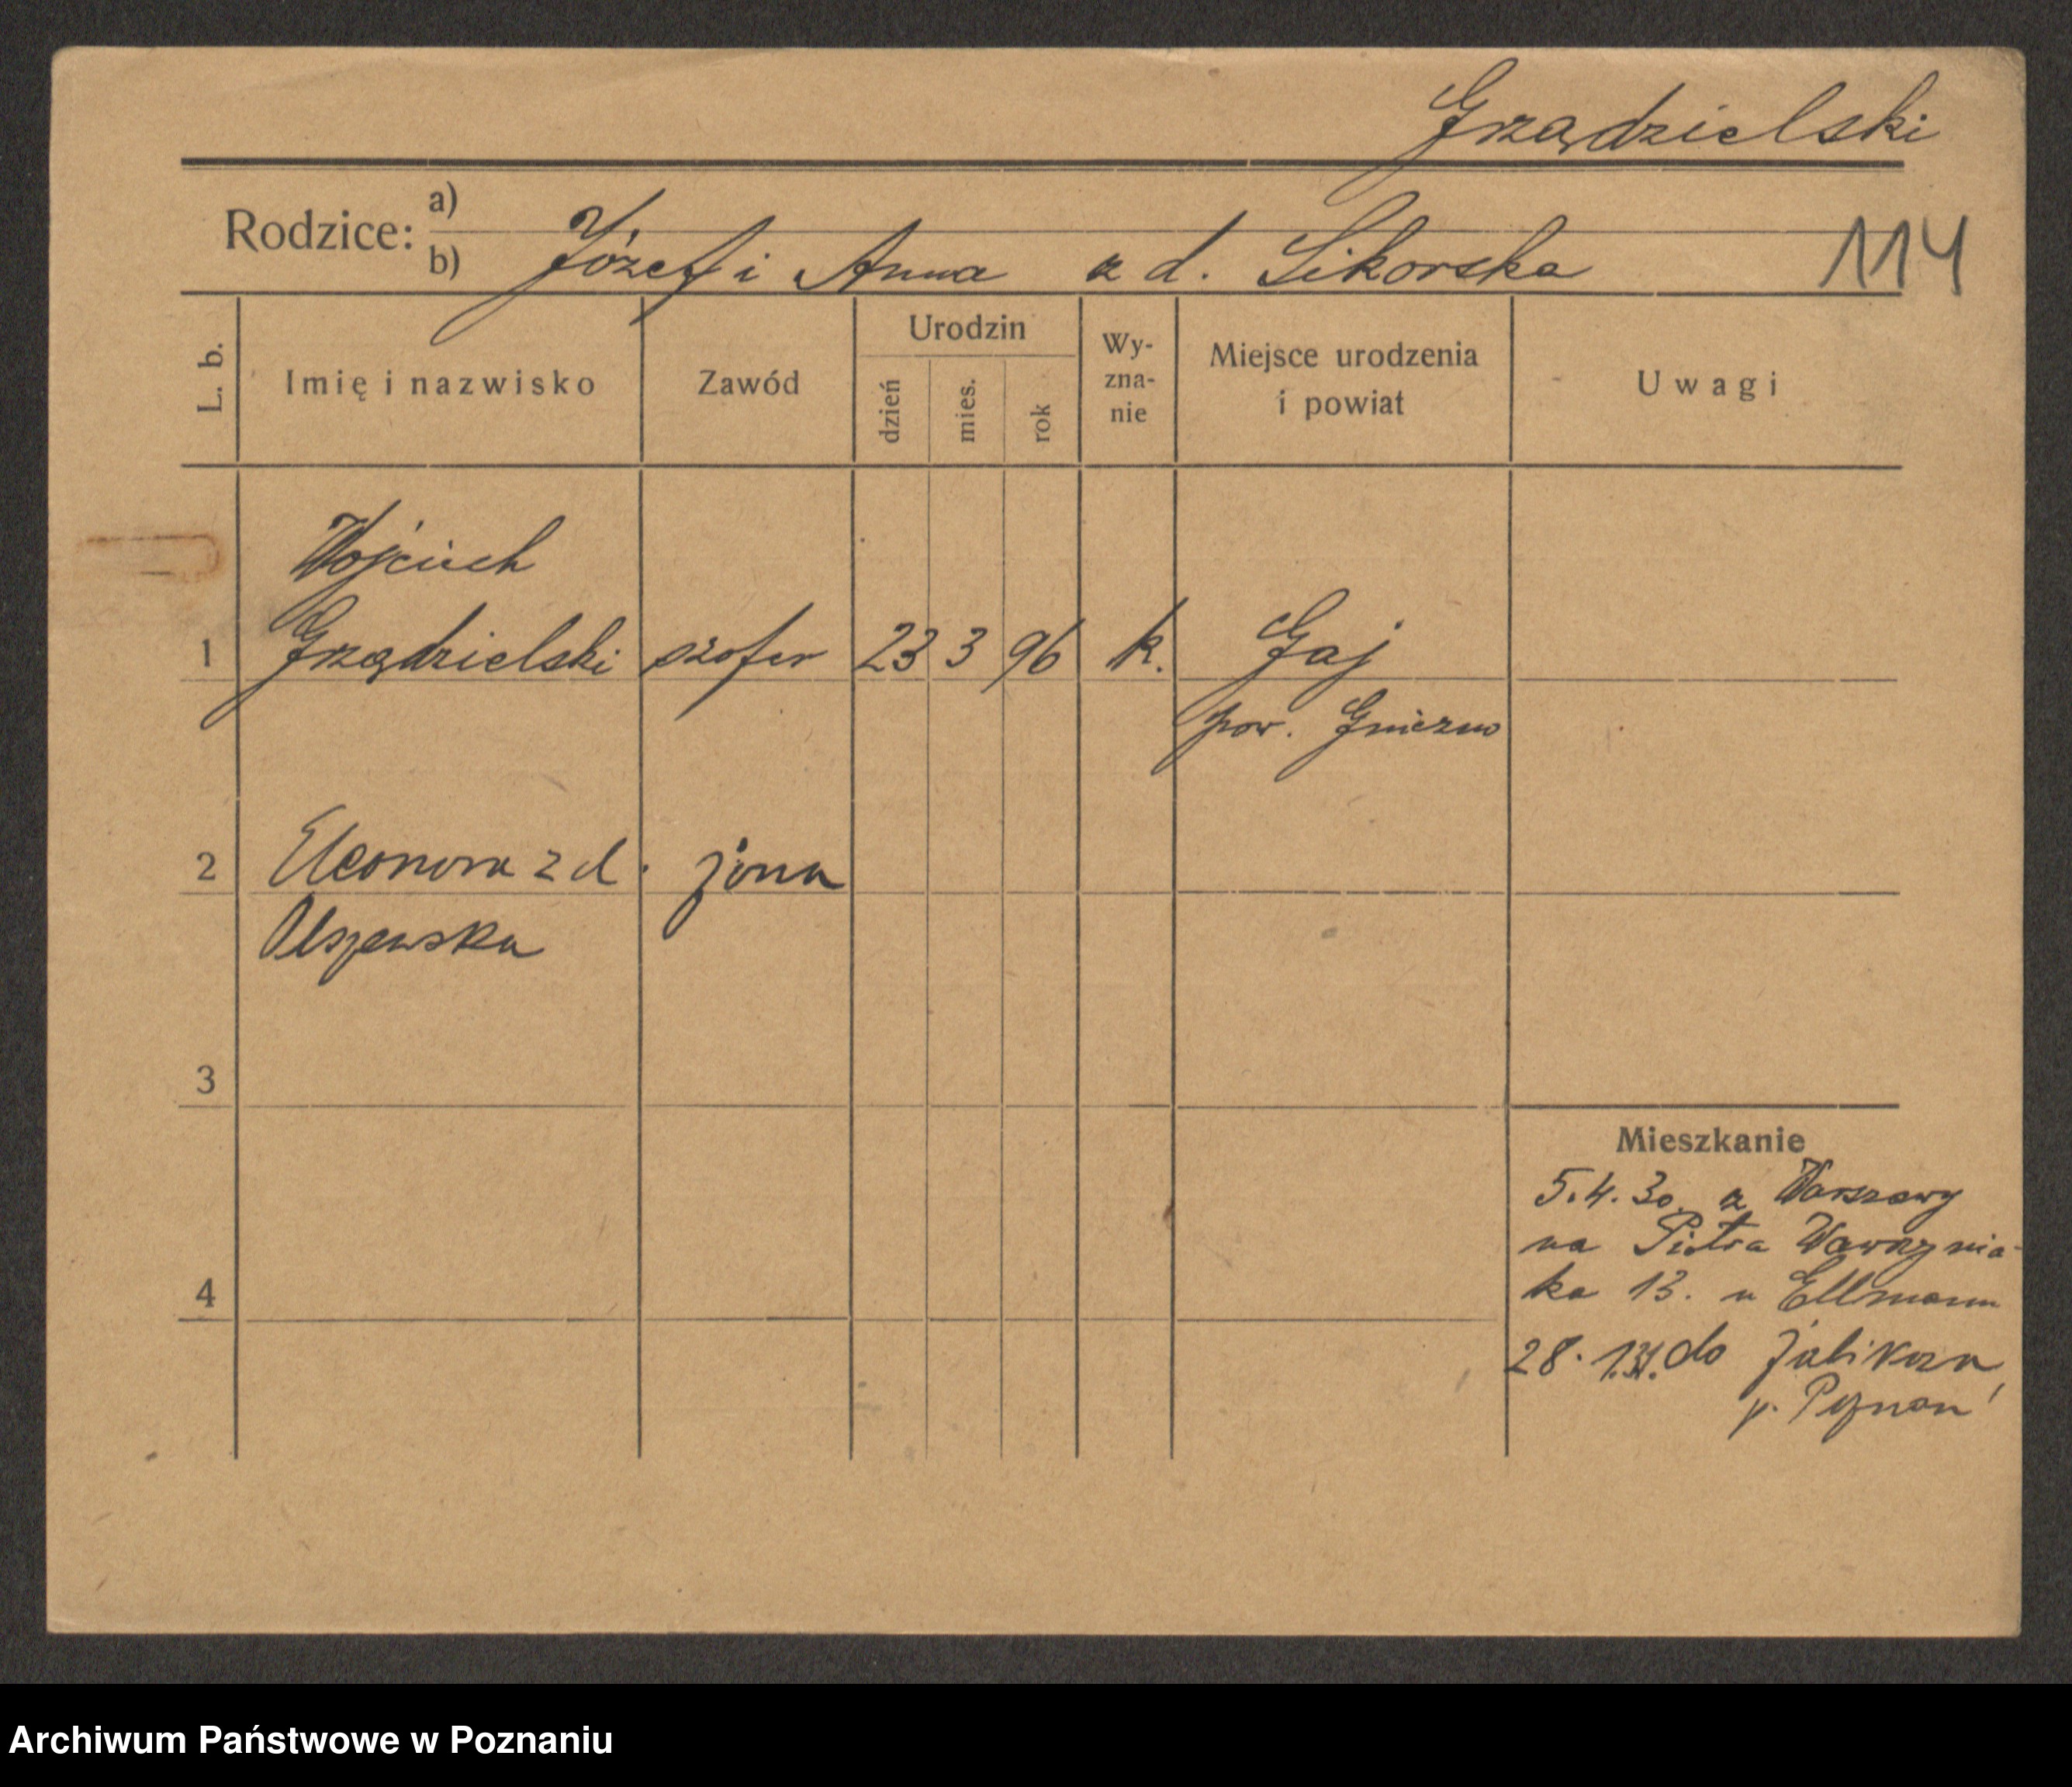 Grządzielski
Rodzice: a)
b) Józef i Anna z d. Sikorska
114
L. b.
Imię i nazwisko
Zawód
Urodzin
dzień
mies.
rok
Wy-
zna-
nie
Miejsce urodzenia
i powiat
Uwagi
Wojciech
1 Grządzielski szofer 23 3 96 k. Gaj
pow. Gniezno
2 Eleonora z d. żona
Olszewska
3
Mieszkanie
5.4.30. z Warszawy
na Piotra Wawrzynia-
ka 13. u Ellmann
4
28.1.31. do Żabikowa
p. Poznań
Archiwum Państwowe w Poznaniu